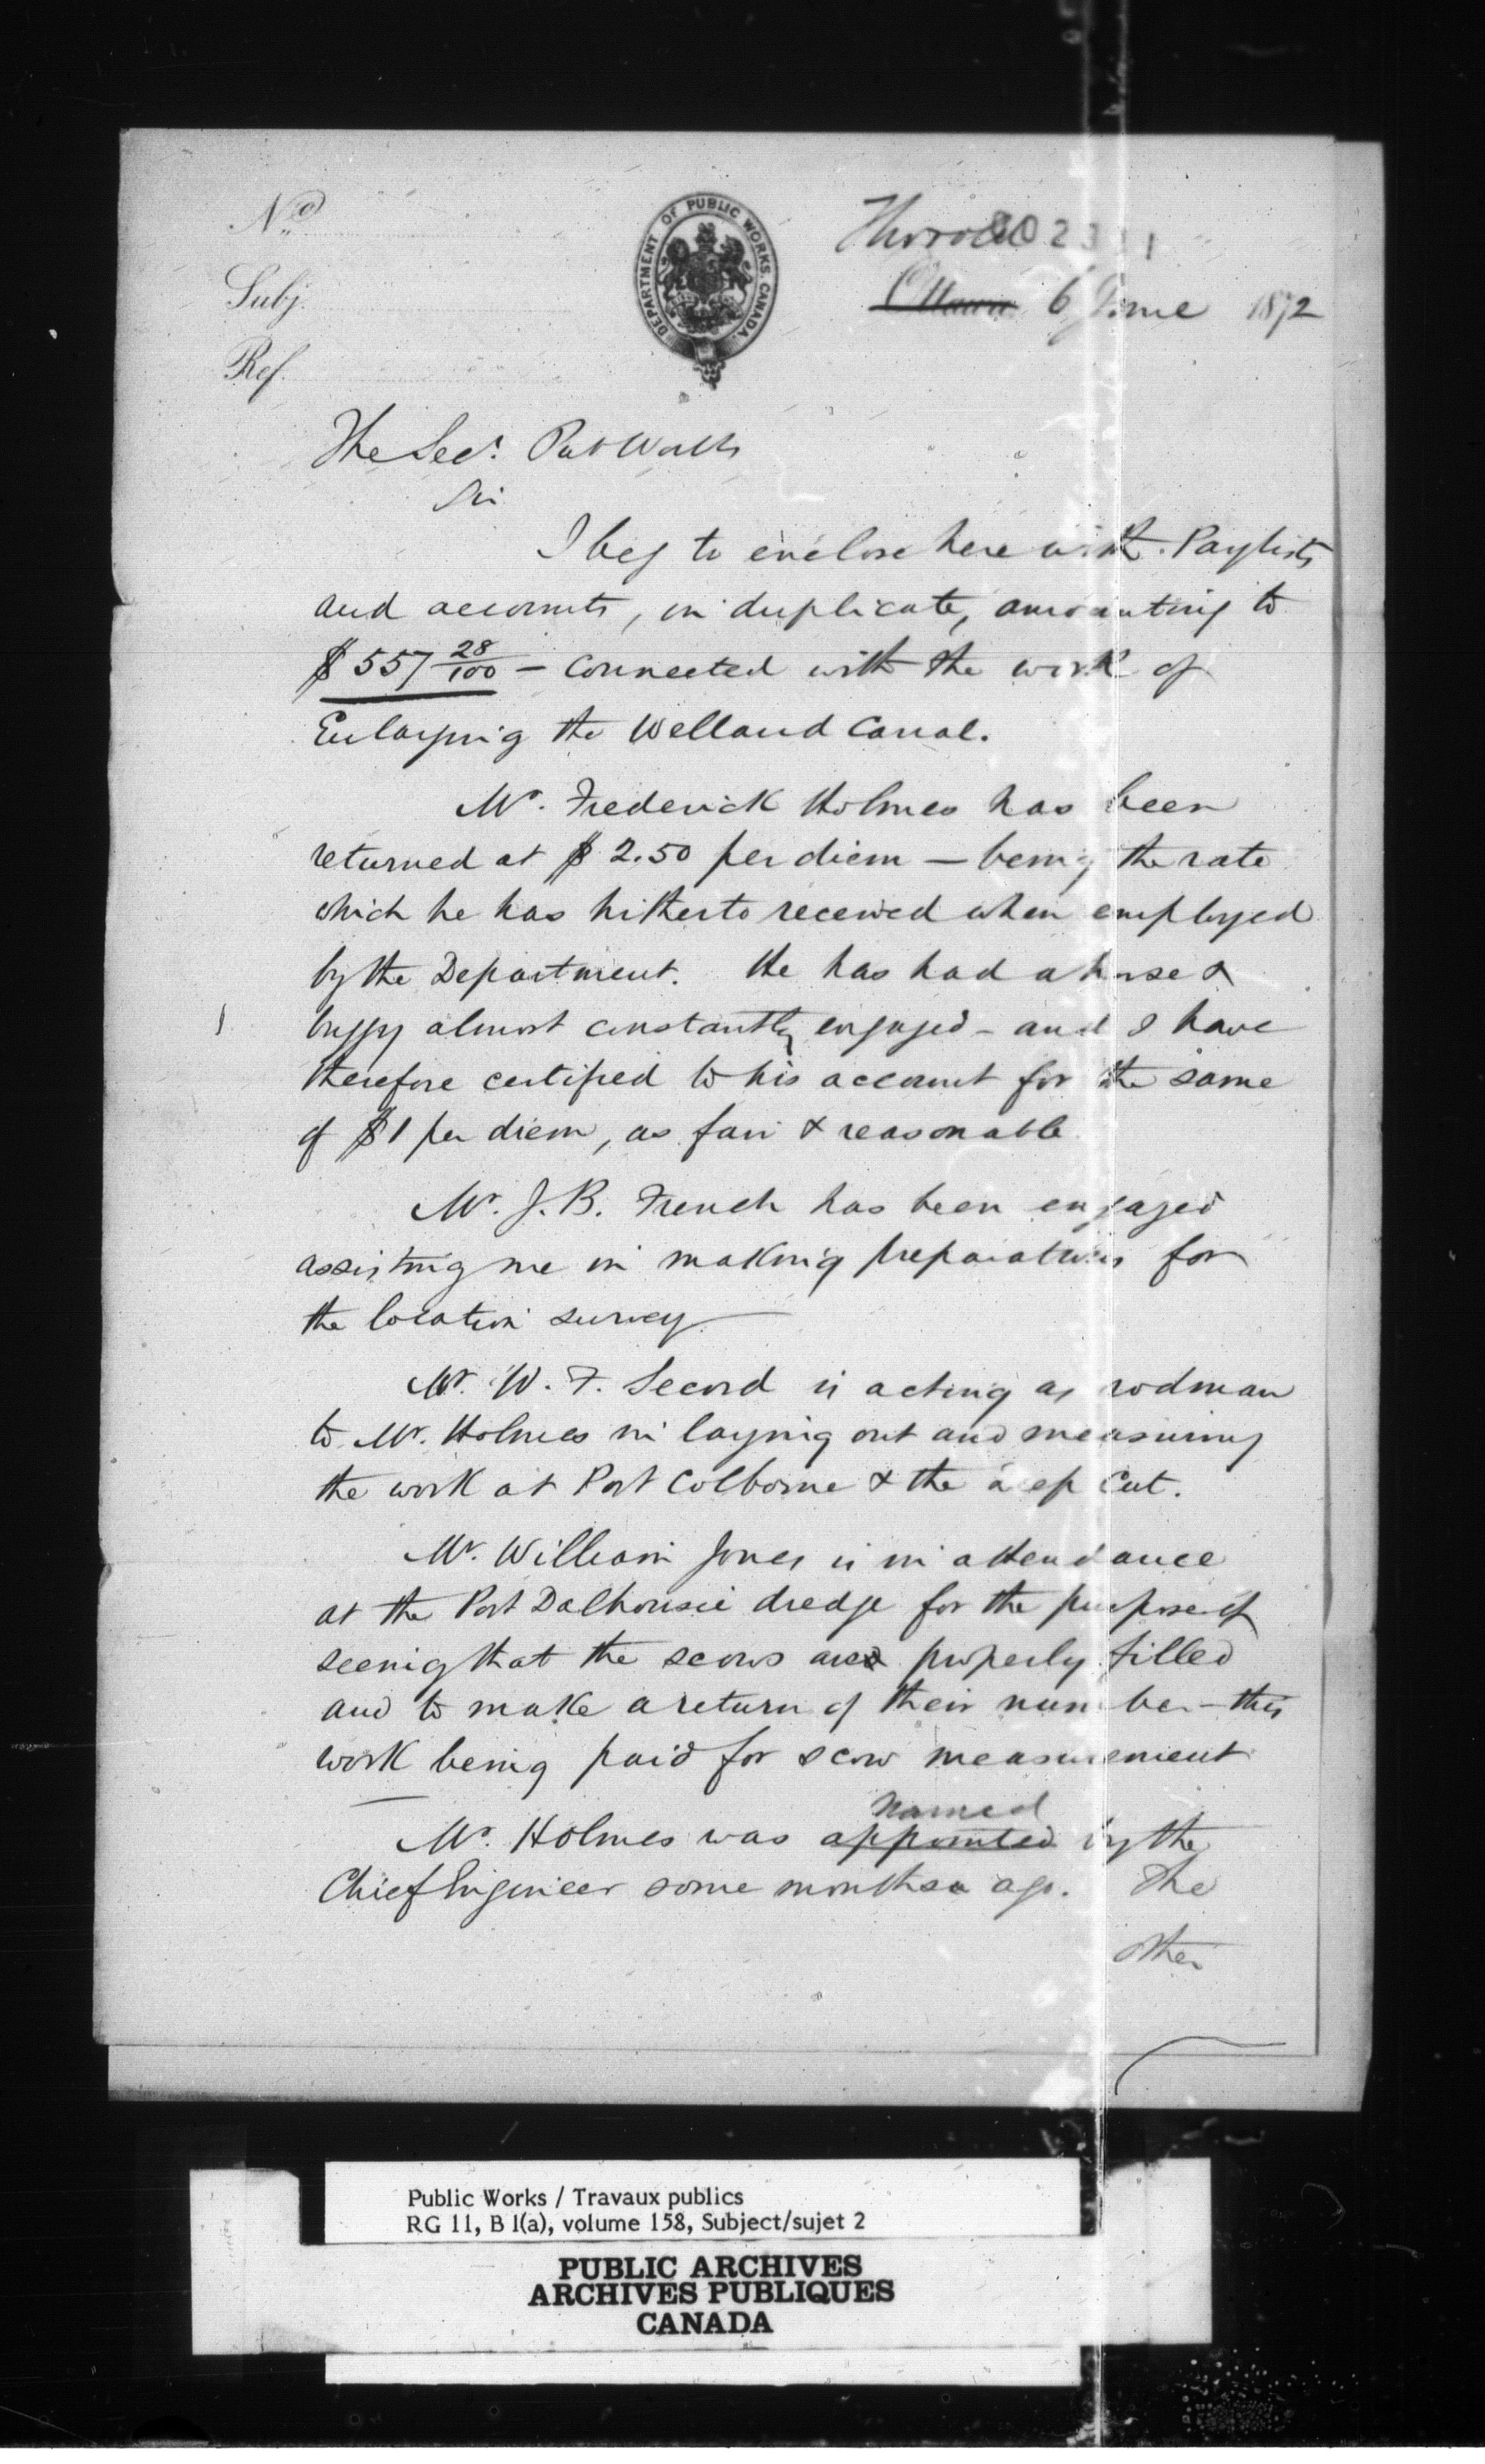 No
Subj.
Ref.
DEPARTMENT OF PUBLIC WORKS. CANADA.
Thorold
Ottawa 6 June 1872
The Secy. Pub Works
Sir
I beg to enclose herewith Paylists
and accounts, in duplicate, amounting to
$557 28/100 – connected with the work of
Enlarging the Welland Canal.
Mr. Frederick Holmes has been
returned at $2.50 per diem — being the rate
which he has hitherto received when employed
by the Department. He has had a horse &
buggy almost constantly engaged – and I have
therefore certified to his account for the same
of $1 per diem, as fair & reasonable
Mr. J. B. French has been engaged
assisting me in making preparations for
the location survey.
Mr. W. F. Secord is acting as rodman
to Mr. Holmes in laying out and measuring
the work at Port Colborne & the deep Cut.
Mr. William Jones is in attendance
at the Port Dalhousie dredge for the purpose of
seeing that the scows are properly filled
and to make a return of their number – this
work being paid for scow measurement
named
Mr. Holmes was appointed by the
Chief Engineer some months ago. The
other
Public Works / Travaux publics
RG 11, B 1(a), volume 158, Subject/sujet 2
PUBLIC ARCHIVES
ARCHIVES PUBLIQUES
CANADA